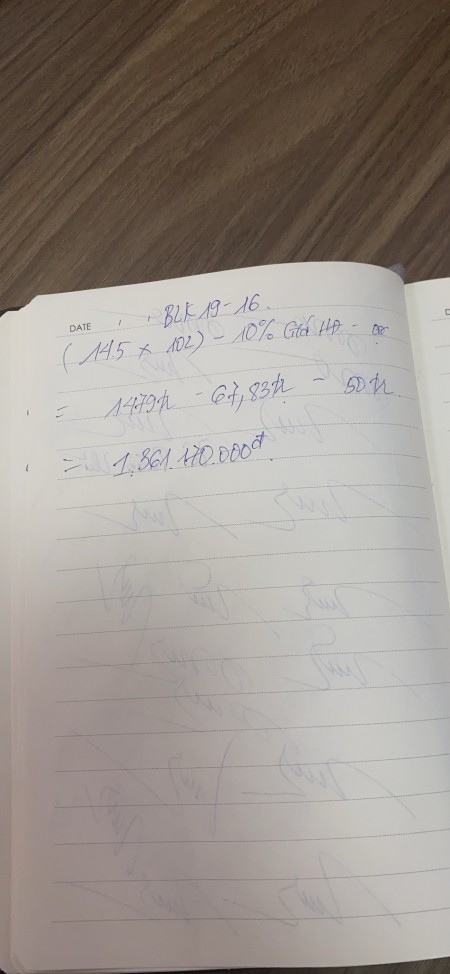 DATE
BLK 19-16.
(14.5 x 102) - 10% Giá HĐ - 
= 1479tr - 67,83tr - 50tr.
= 1.361.170.000đ